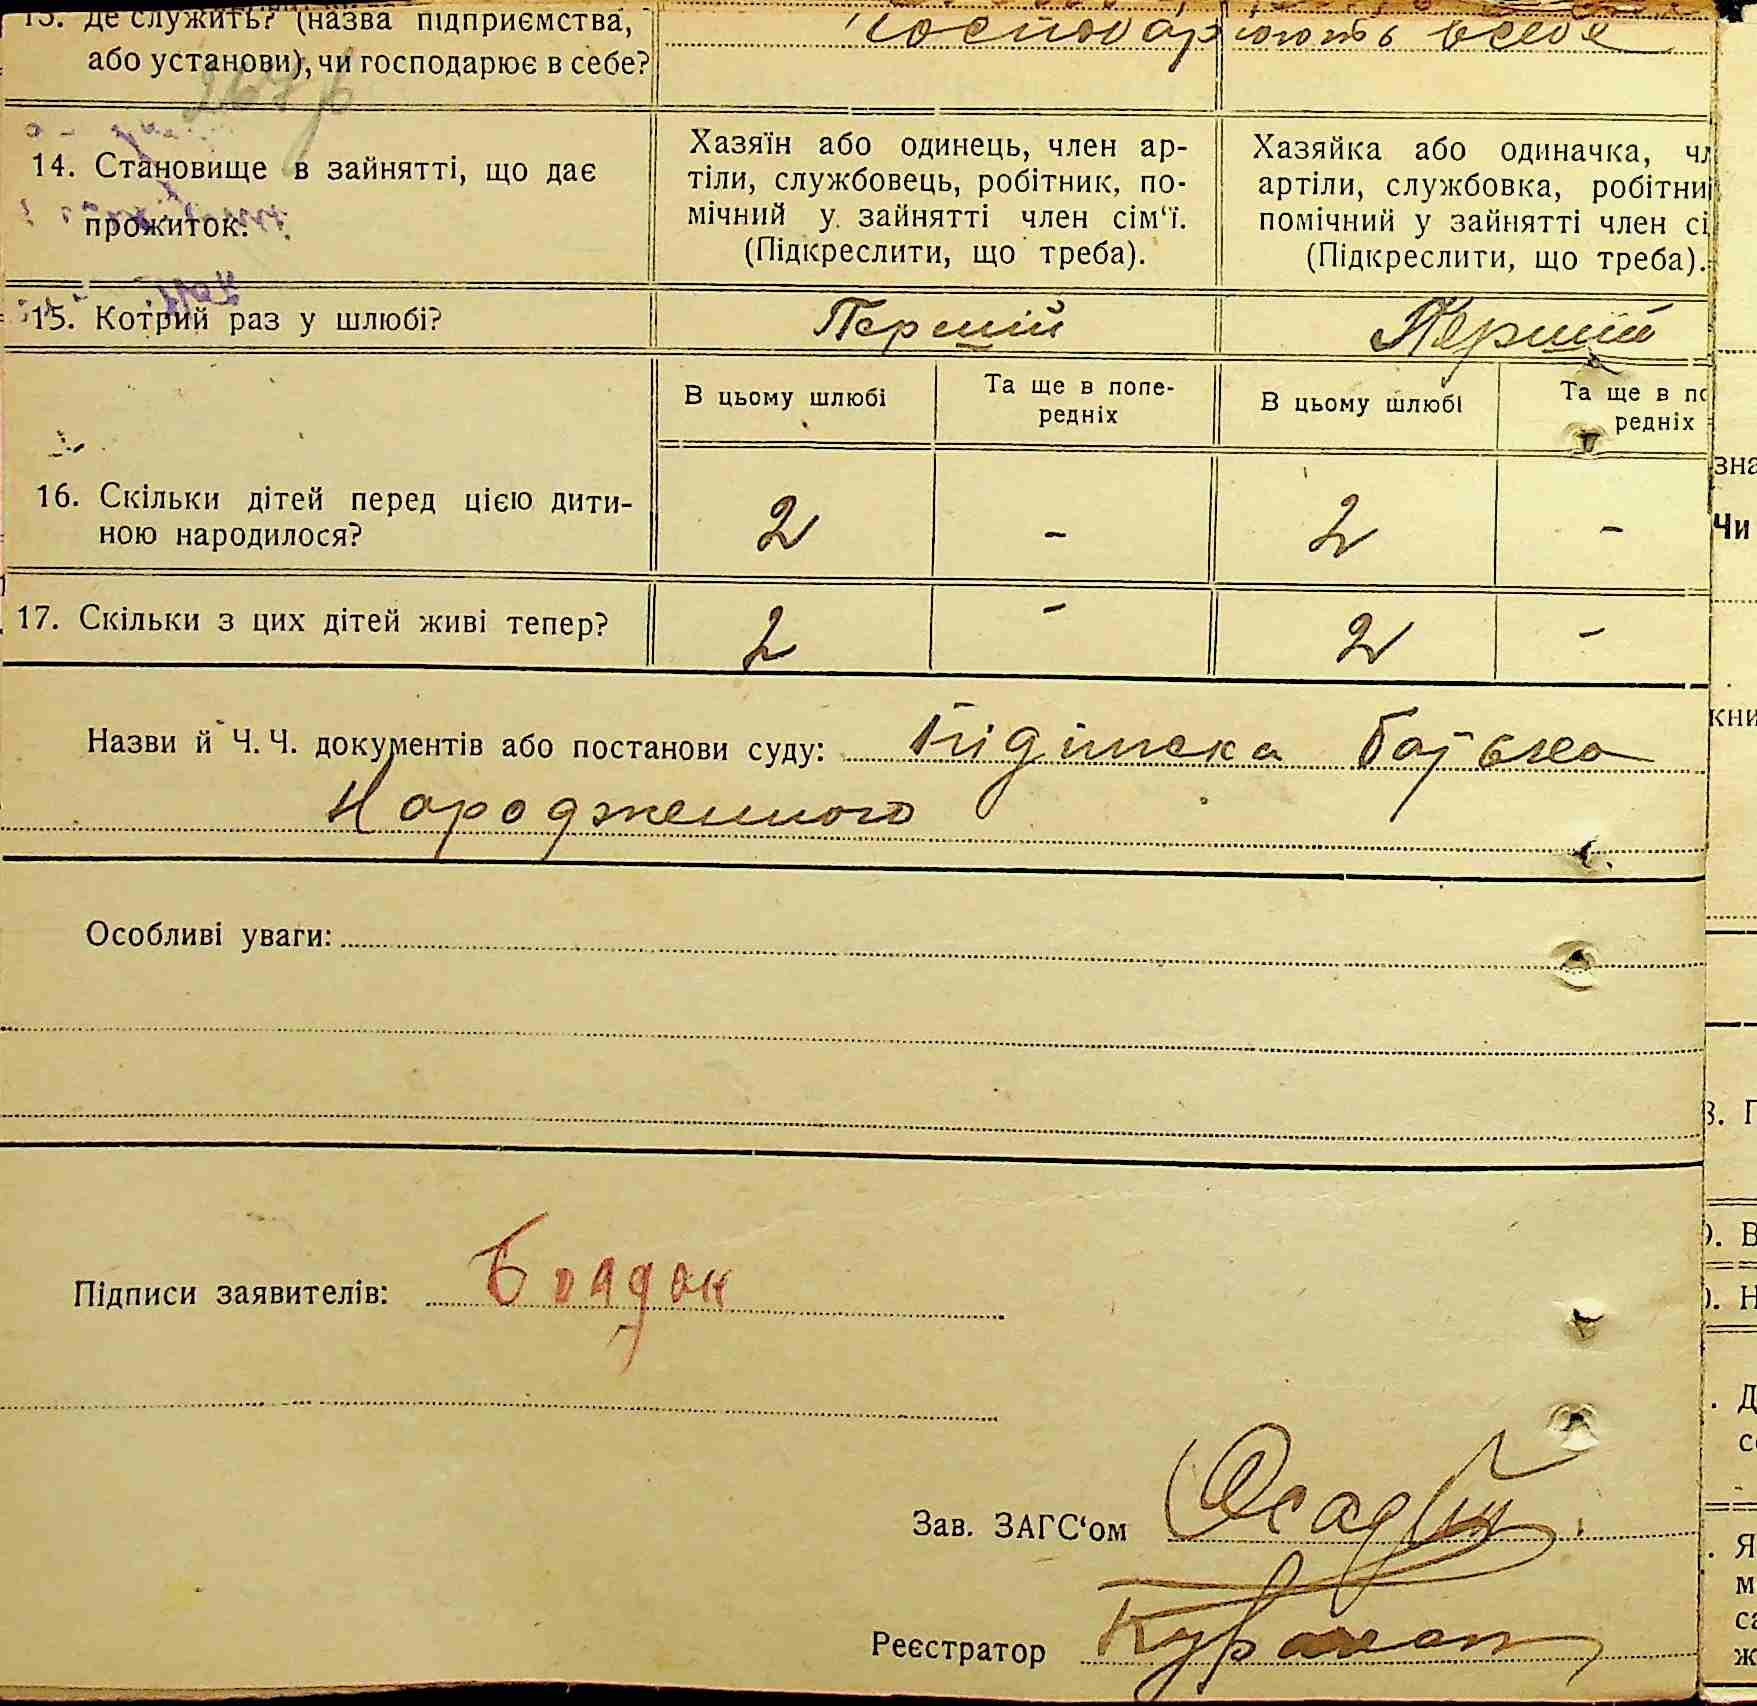 13. Де служить? (назва підприємства,
або установи), чи господарює в себе?
Господарюють в себе
14. Становище в зайнятті, що дає
прожиток:
Хазяїн або одинець, член ар-
тіли, службовець, робітник, по-
мічний у зайнятті член сім‘ї.
(Підкреслити, що треба).
Хазяйка або одиначка, чл
артіли, службовка, робітни
помічний у зайнятті член сі
(Підкреслити, що треба).
15. Котрий раз у шлюбі?
Перший Перший
В цьому шлюбі
Та ще в попе-
редніх
В цьому шлюбі
Та ще в по
редніх
16. Скільки дітей перед цією дити-
ною народилося?
2 - 2 -
17. Скільки з цих дітей живі тепер?
2 - 2 -
Назви й Ч. Ч. документів або постанови суду: Підписка батька
Народженного
Особливі уваги:
Підписи заявителів:
Зав. ЗАГС‘ом
Реєстратор
зна
Чи
кни